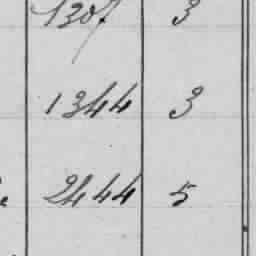 1307 3
1344 3
2444 5